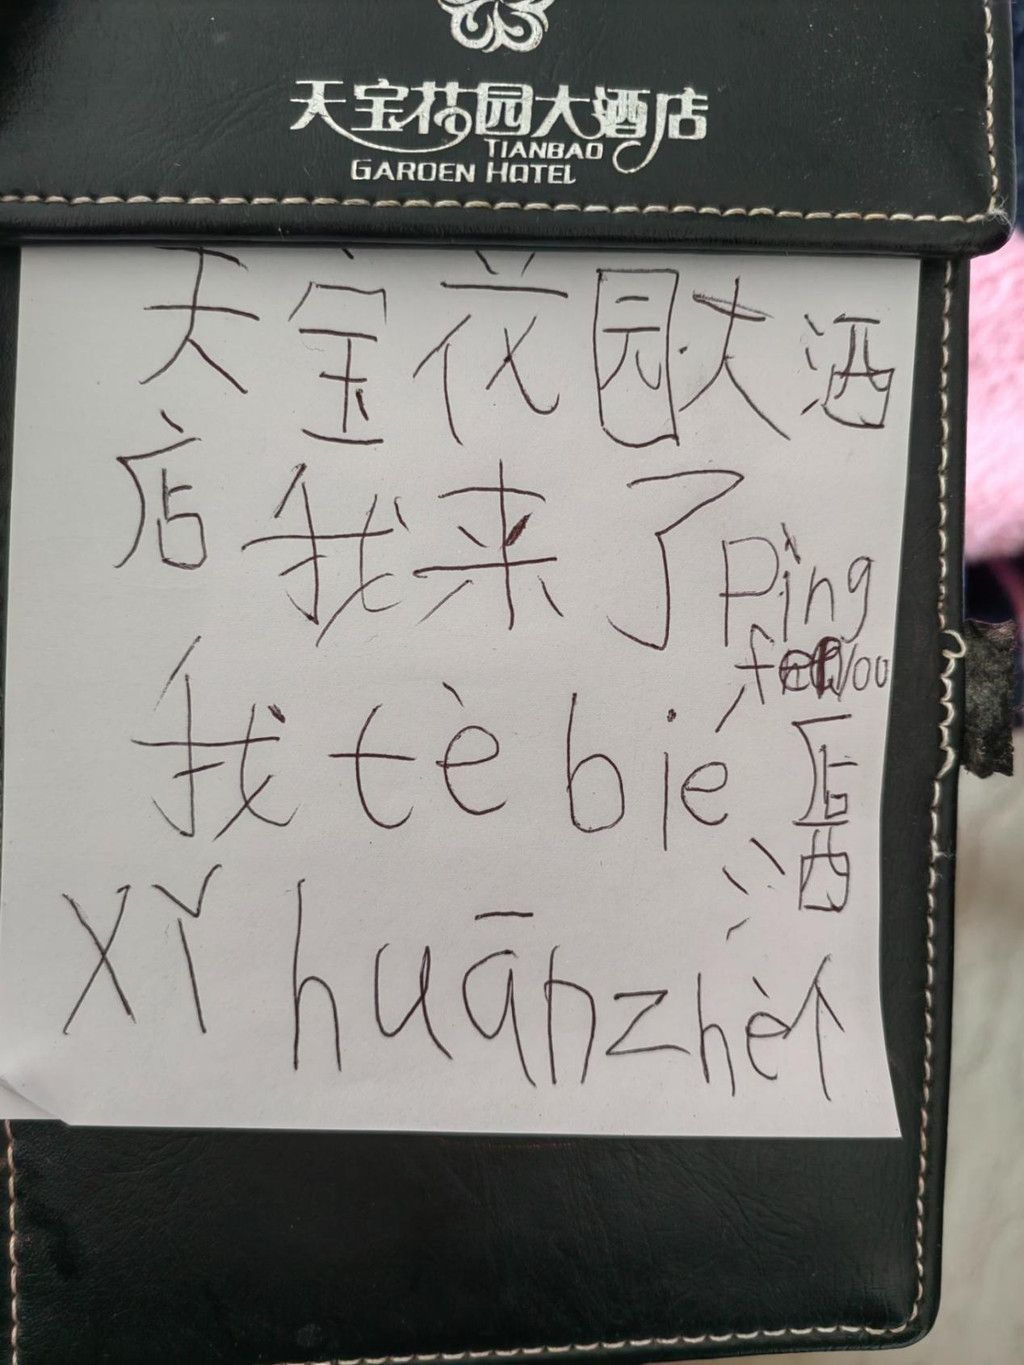 天宝花园大酒店
TIANBAO
GARDEN HOTEL
天宝花园大酒
店我来了pìng
我tèbié店
酒
xǐhuānzhè个